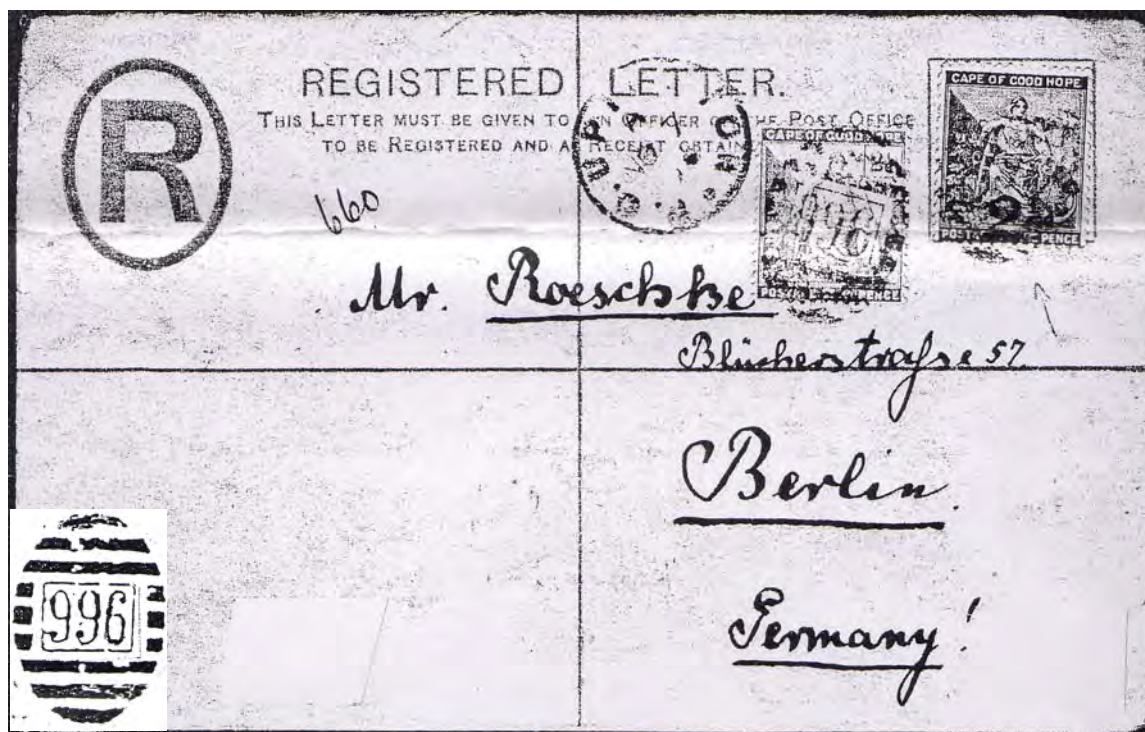 REGISTERED LETTER.
THIS LETTER MUST BE GIVEN TO AN OFFICER OF THE POST OFFICE
TO BE REGISTERED AND A RECEIPT OBTAIN
R
CAPE OF GOOD HOPE
POSTAGE PENCE
CAPE OF GOOD HOPE
996
POSTAGE PENCE
660
Mr. Roeschke
Blücherstraße 57.
Berlin
Germany!
996